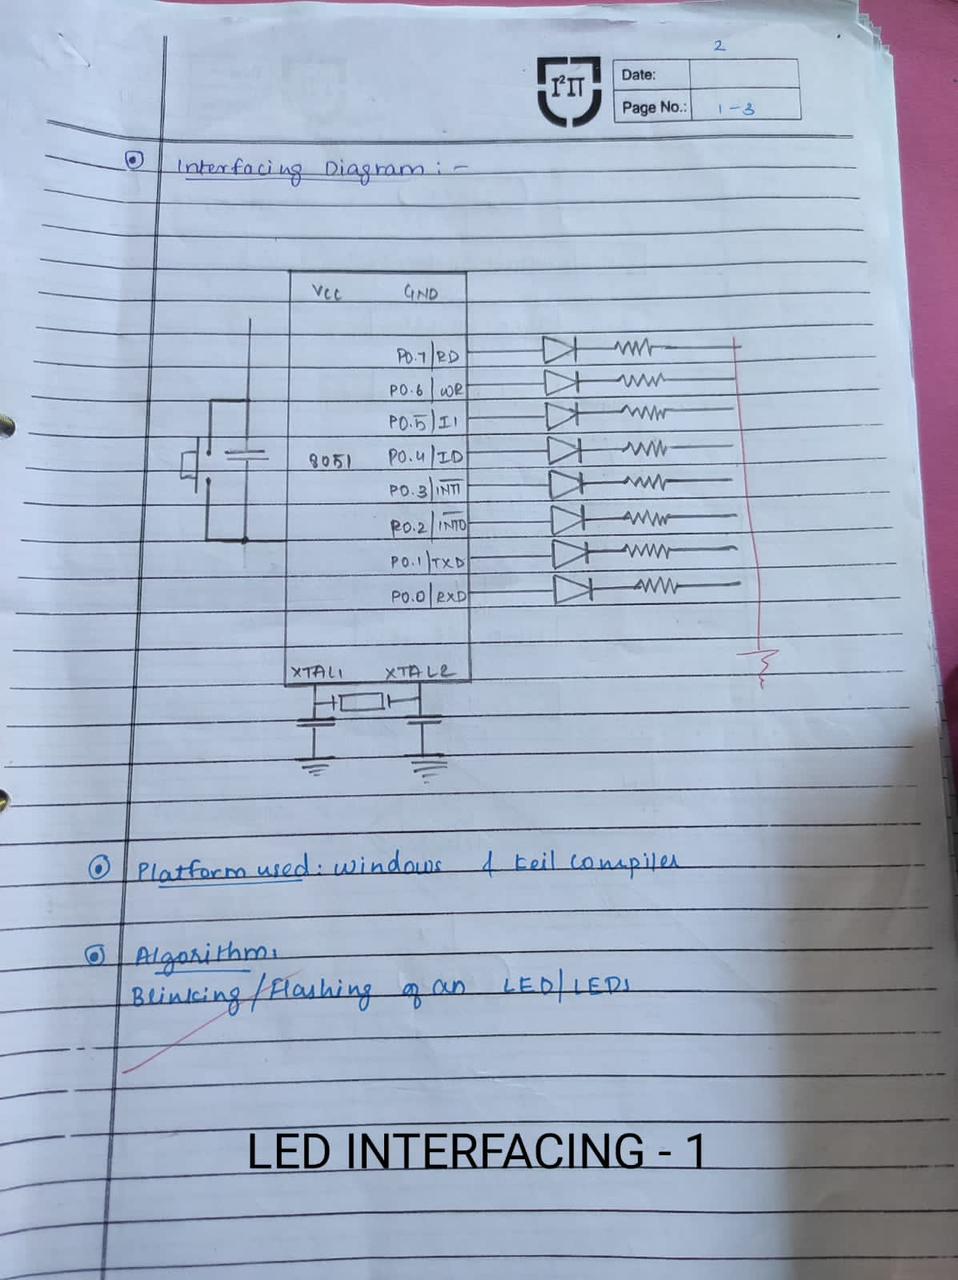 2
I²IT
Date:
Page No.: 1-3
Interfacing Diagram :-
VCC GND
P0.7/RD
P0.6/WR
P0.5/I1
8051 P0.4/I0
P0.3/INT1
P0.2/INT0
P0.1/TXD
P0.0/RXD
XTAL1 XTAL2
Platform used: Windows & keil compiler
Algorithm:
Blinking/Flashing of an LED/LEDs
LED INTERFACING - 1